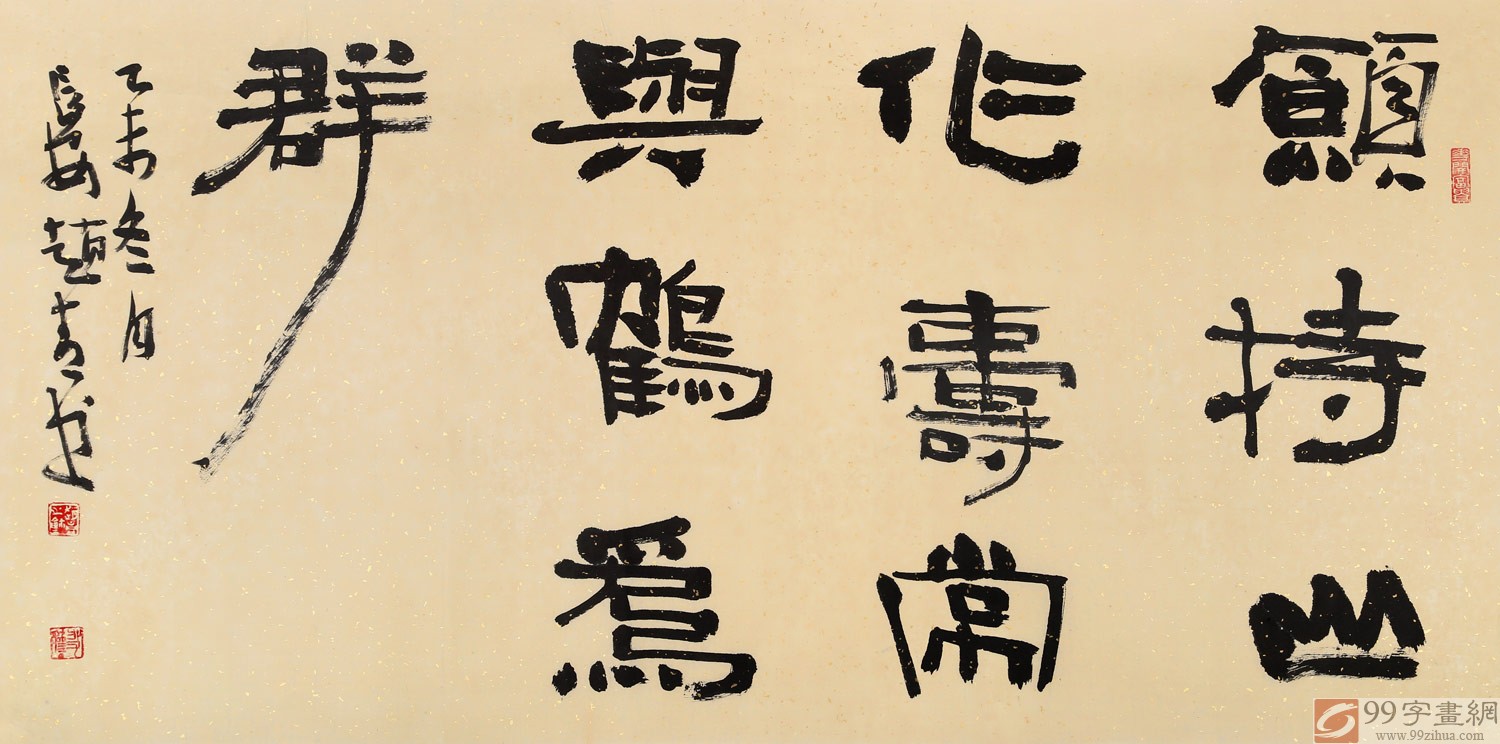 願持山
作壽常
與鶴為
群
乙未冬月
長安趙青書
99字畫網
www.99zihua.com